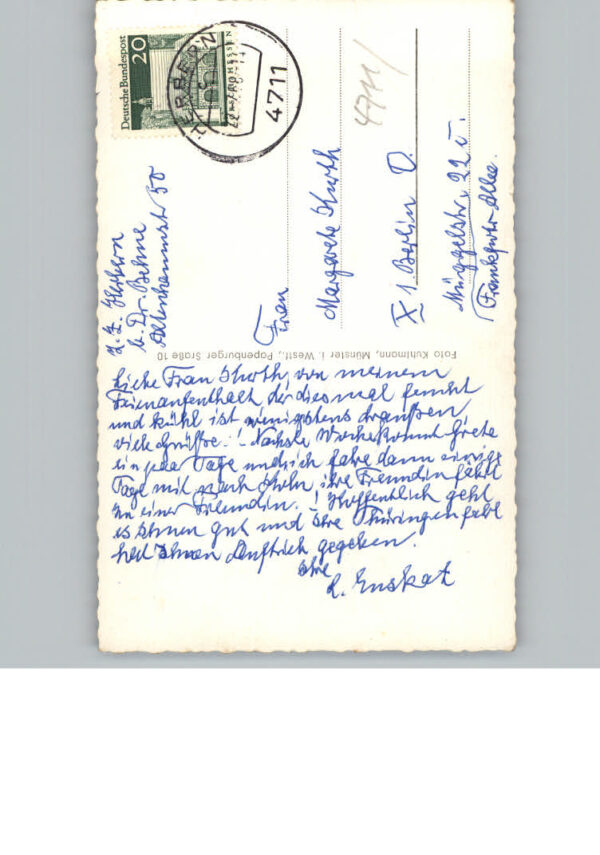 Deutsche Bundespost
20
HESSEN
HERBERN
4711
4711/
z. Z. Herbern
b. Dr. Behne
Altenhammstr 50
Frau
Margarete Kurth
X 1 Berlin O.
Müggelstr. 22 v.
Frankfurter Allee.
Foto Kuhlmann, Münster i. Westf., Papenburger Straße 10
Liebe Frau Kurth, von meinem
Ferienaufenthalt der diesmal feucht
und kühl ist wenigstens draußen,
viele Grüße! Nächste Woche kommt Grete
ein paar Tage und ich fahre dann einige
Tage mit nach Köln, ihre Freundin fährt
zu einer Freundin. ! Hoffentlich geht
es Ihnen gut und Ihre Thüringenfahrt
hat Ihnen Auftrieb gegeben.
Ihre
E. Enskat